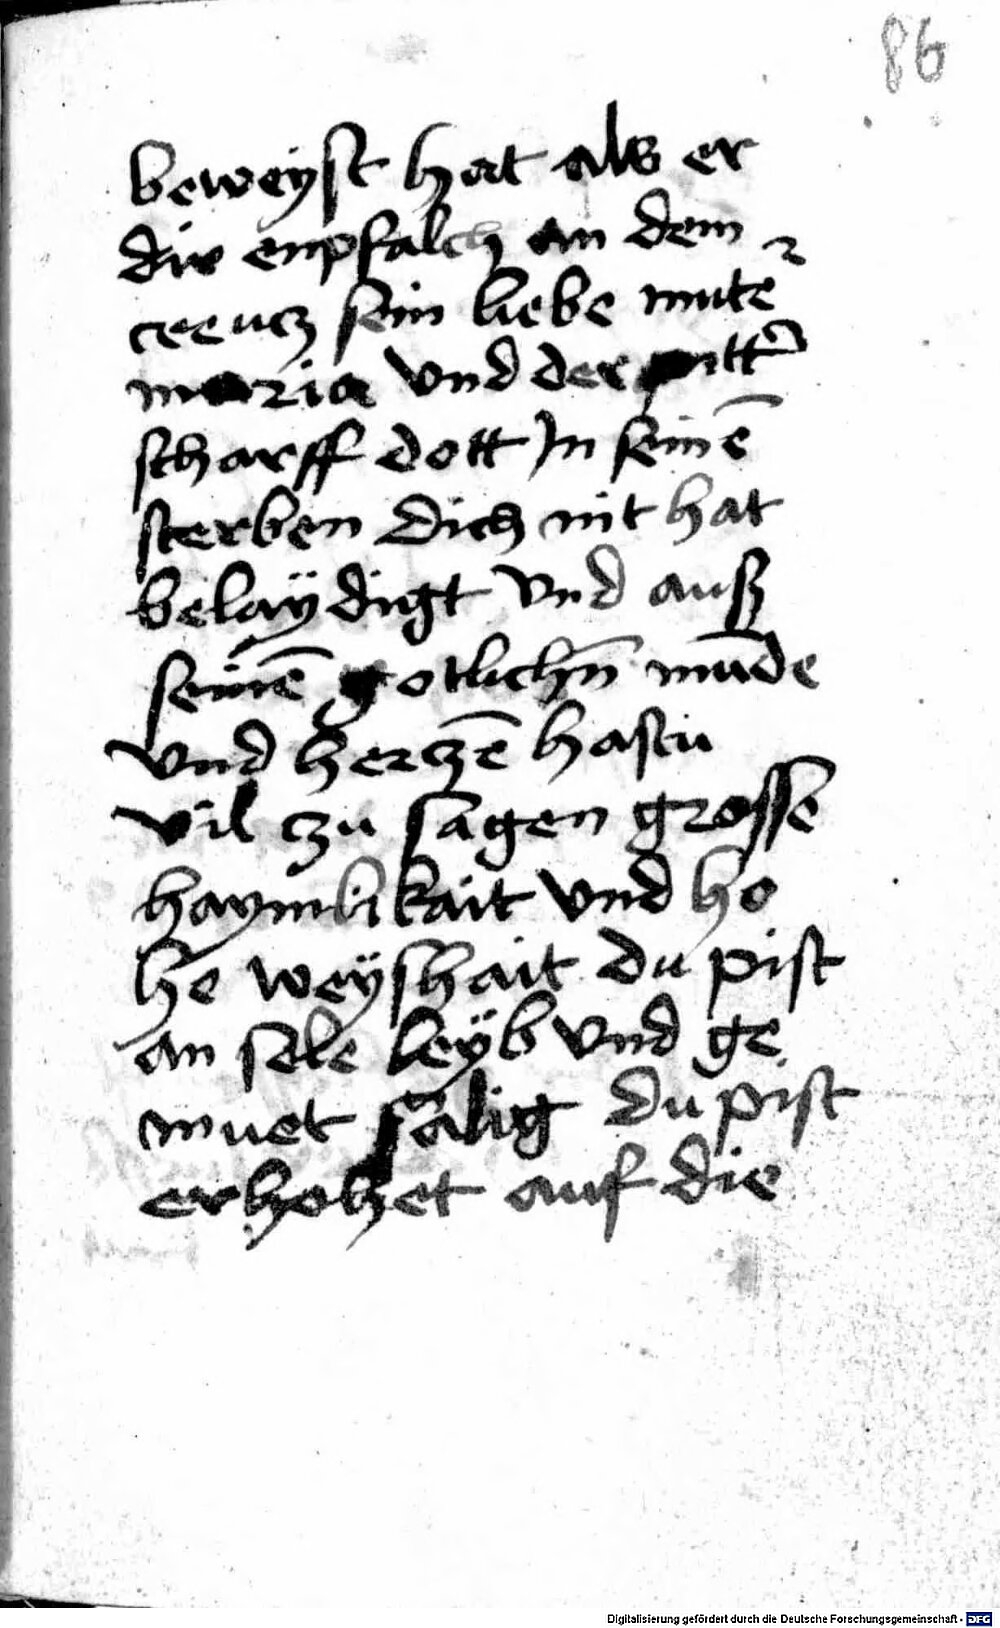 86
beweÿst hat als er
dir enpfalch an dem
creucz sein liebe mutẽ
maria vnd der pittᷣ
scharff dott In seinẽ
sterben dich nit hat
belaÿdigt vnd auß
seinẽ gotlichñ mūde
vnd herczẽ hastu
vil czu sagen grosse
haymlikait vnd ho
he weÿshait du pist
an sele leÿb vnd ge
muet sälig du pist
erhohet auf die
Digitalisierung gefördert durch die Deutsche Forschungsgemeinschaft - DFG